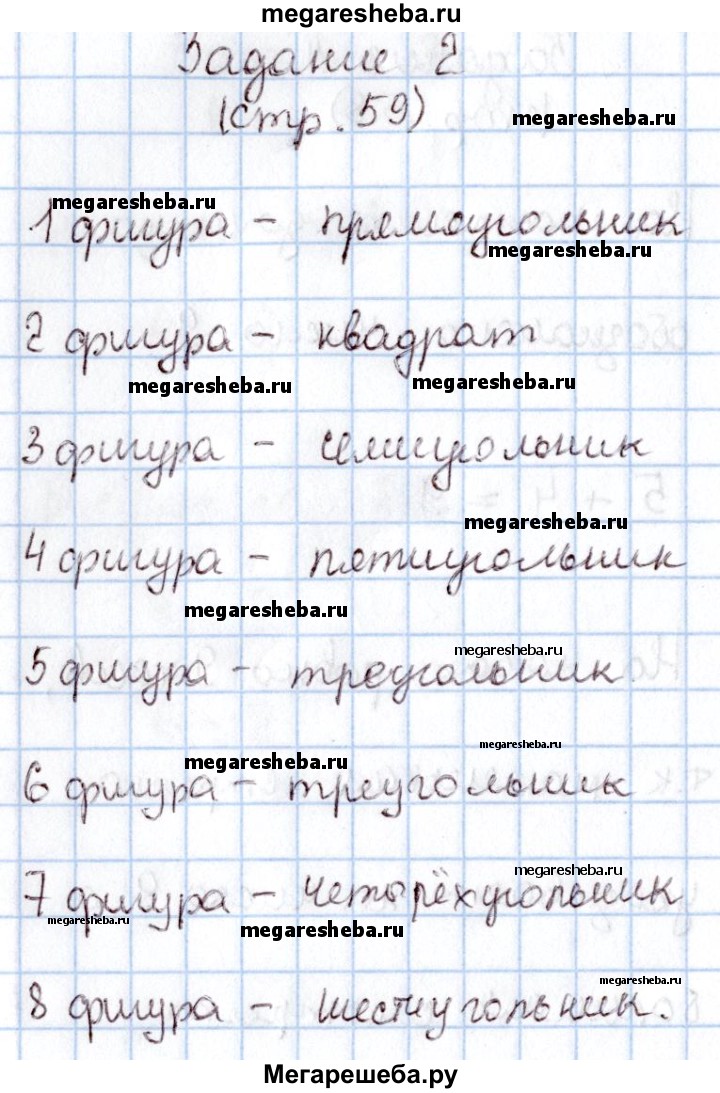 megaresheba.ru
Задание 2
(стр. 59)
megaresheba.ru
megaresheba.ru
1 фигура - прямоугольник
megaresheba.ru
2 фигура - квадрат
megaresheba.ru
megaresheba.ru
3 фигура - семиугольник
megaresheba.ru
4 фигура - пятиугольник
megaresheba.ru
megaresheba.ru
5 фигура - треугольник
megaresheba.ru
megaresheba.ru
6 фигура - треугольник
megaresheba.ru
7 фигура - четырёхугольник
megaresheba.ru
megaresheba.ru
megaresheba.ru
8 фигура - шестиугольник.
Мегарешеба.ру